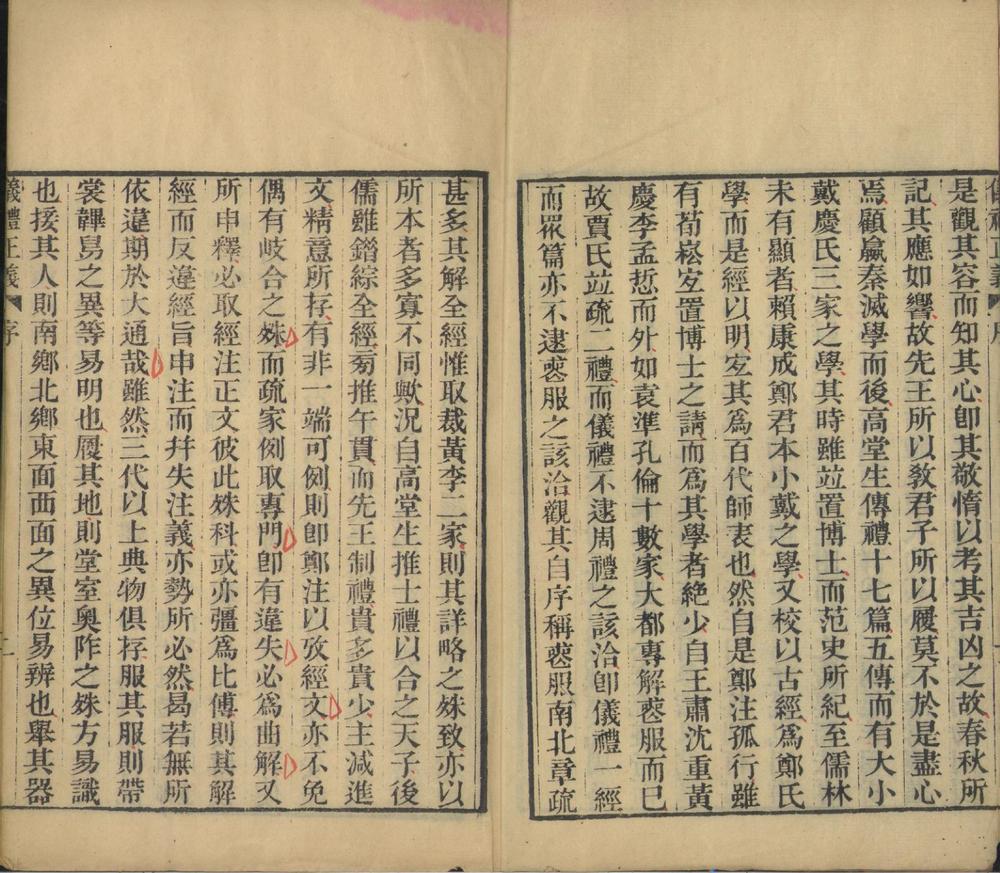 儀禮正義 序
是觀其容而知其心卽其敬惰以考其吉凶之故春秋所
記其應如響故先王所以敎君子所以履莫不於是盡心
焉顧嬴秦滅學而後高堂生傳禮十七篇五傳而有大小
戴慶氏三家之學其時雖竝置博士而范史所紀至儒林
未有顯者賴康成鄭君本小戴之學又校以古經爲鄭氏
學而是經以明㝎其爲百代師表也然自是鄭注孤行雖
有荀崧㝎置博士之請而爲其學者絶少自王肅沈重黃
慶李孟悊而外如袁準孔倫十數家大都專解䘮服而已
故賈氏竝疏二禮而儀禮不逮周禮之該洽卽儀禮一經
而眾篇亦不逮䘮服之該洽觀其自序稱䘮服南北章疏
甚多其解全經惟取裁黃李二家則其詳略之殊致亦以
所本者多寡不同歟況自高堂生推士禮以合之天子後
儒雖錯綜全經㫄推午貫而先王制禮貴多貴少主減進
文精意所存有非一端可例則卽鄭注以攷經文亦不免
偶有岐合之殊而疏家例取專門卽有違失必爲曲解又
所申釋必取經注正文彼此殊科或亦彊爲比傅則其解
經而反違經旨申注而幷失注義亦勢所必然曷若無所
依違期於大通哉雖然三代以上典物俱存服其服則帶
裳韠舄之異等易明也履其地則堂室奧阼之殊方易識
也接其人則南鄉北鄉東面西面之異位易辨也舉其器
儀禮正義 序 二